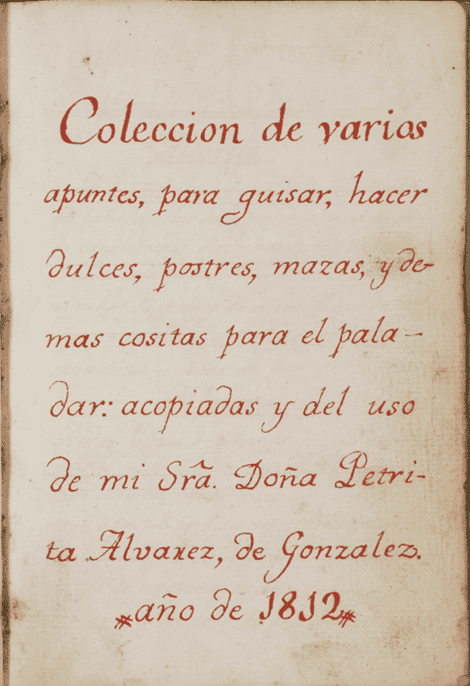 Coleccion de varios
apuntes, para guisar, hacer
dulces, postres, mazas, y de-
mas cositas para el pala-
dar: acopiadas y del uso
de mi Srã. Doña Petri-
ta Alvarez, de Gonzalez.
*año de 1812*